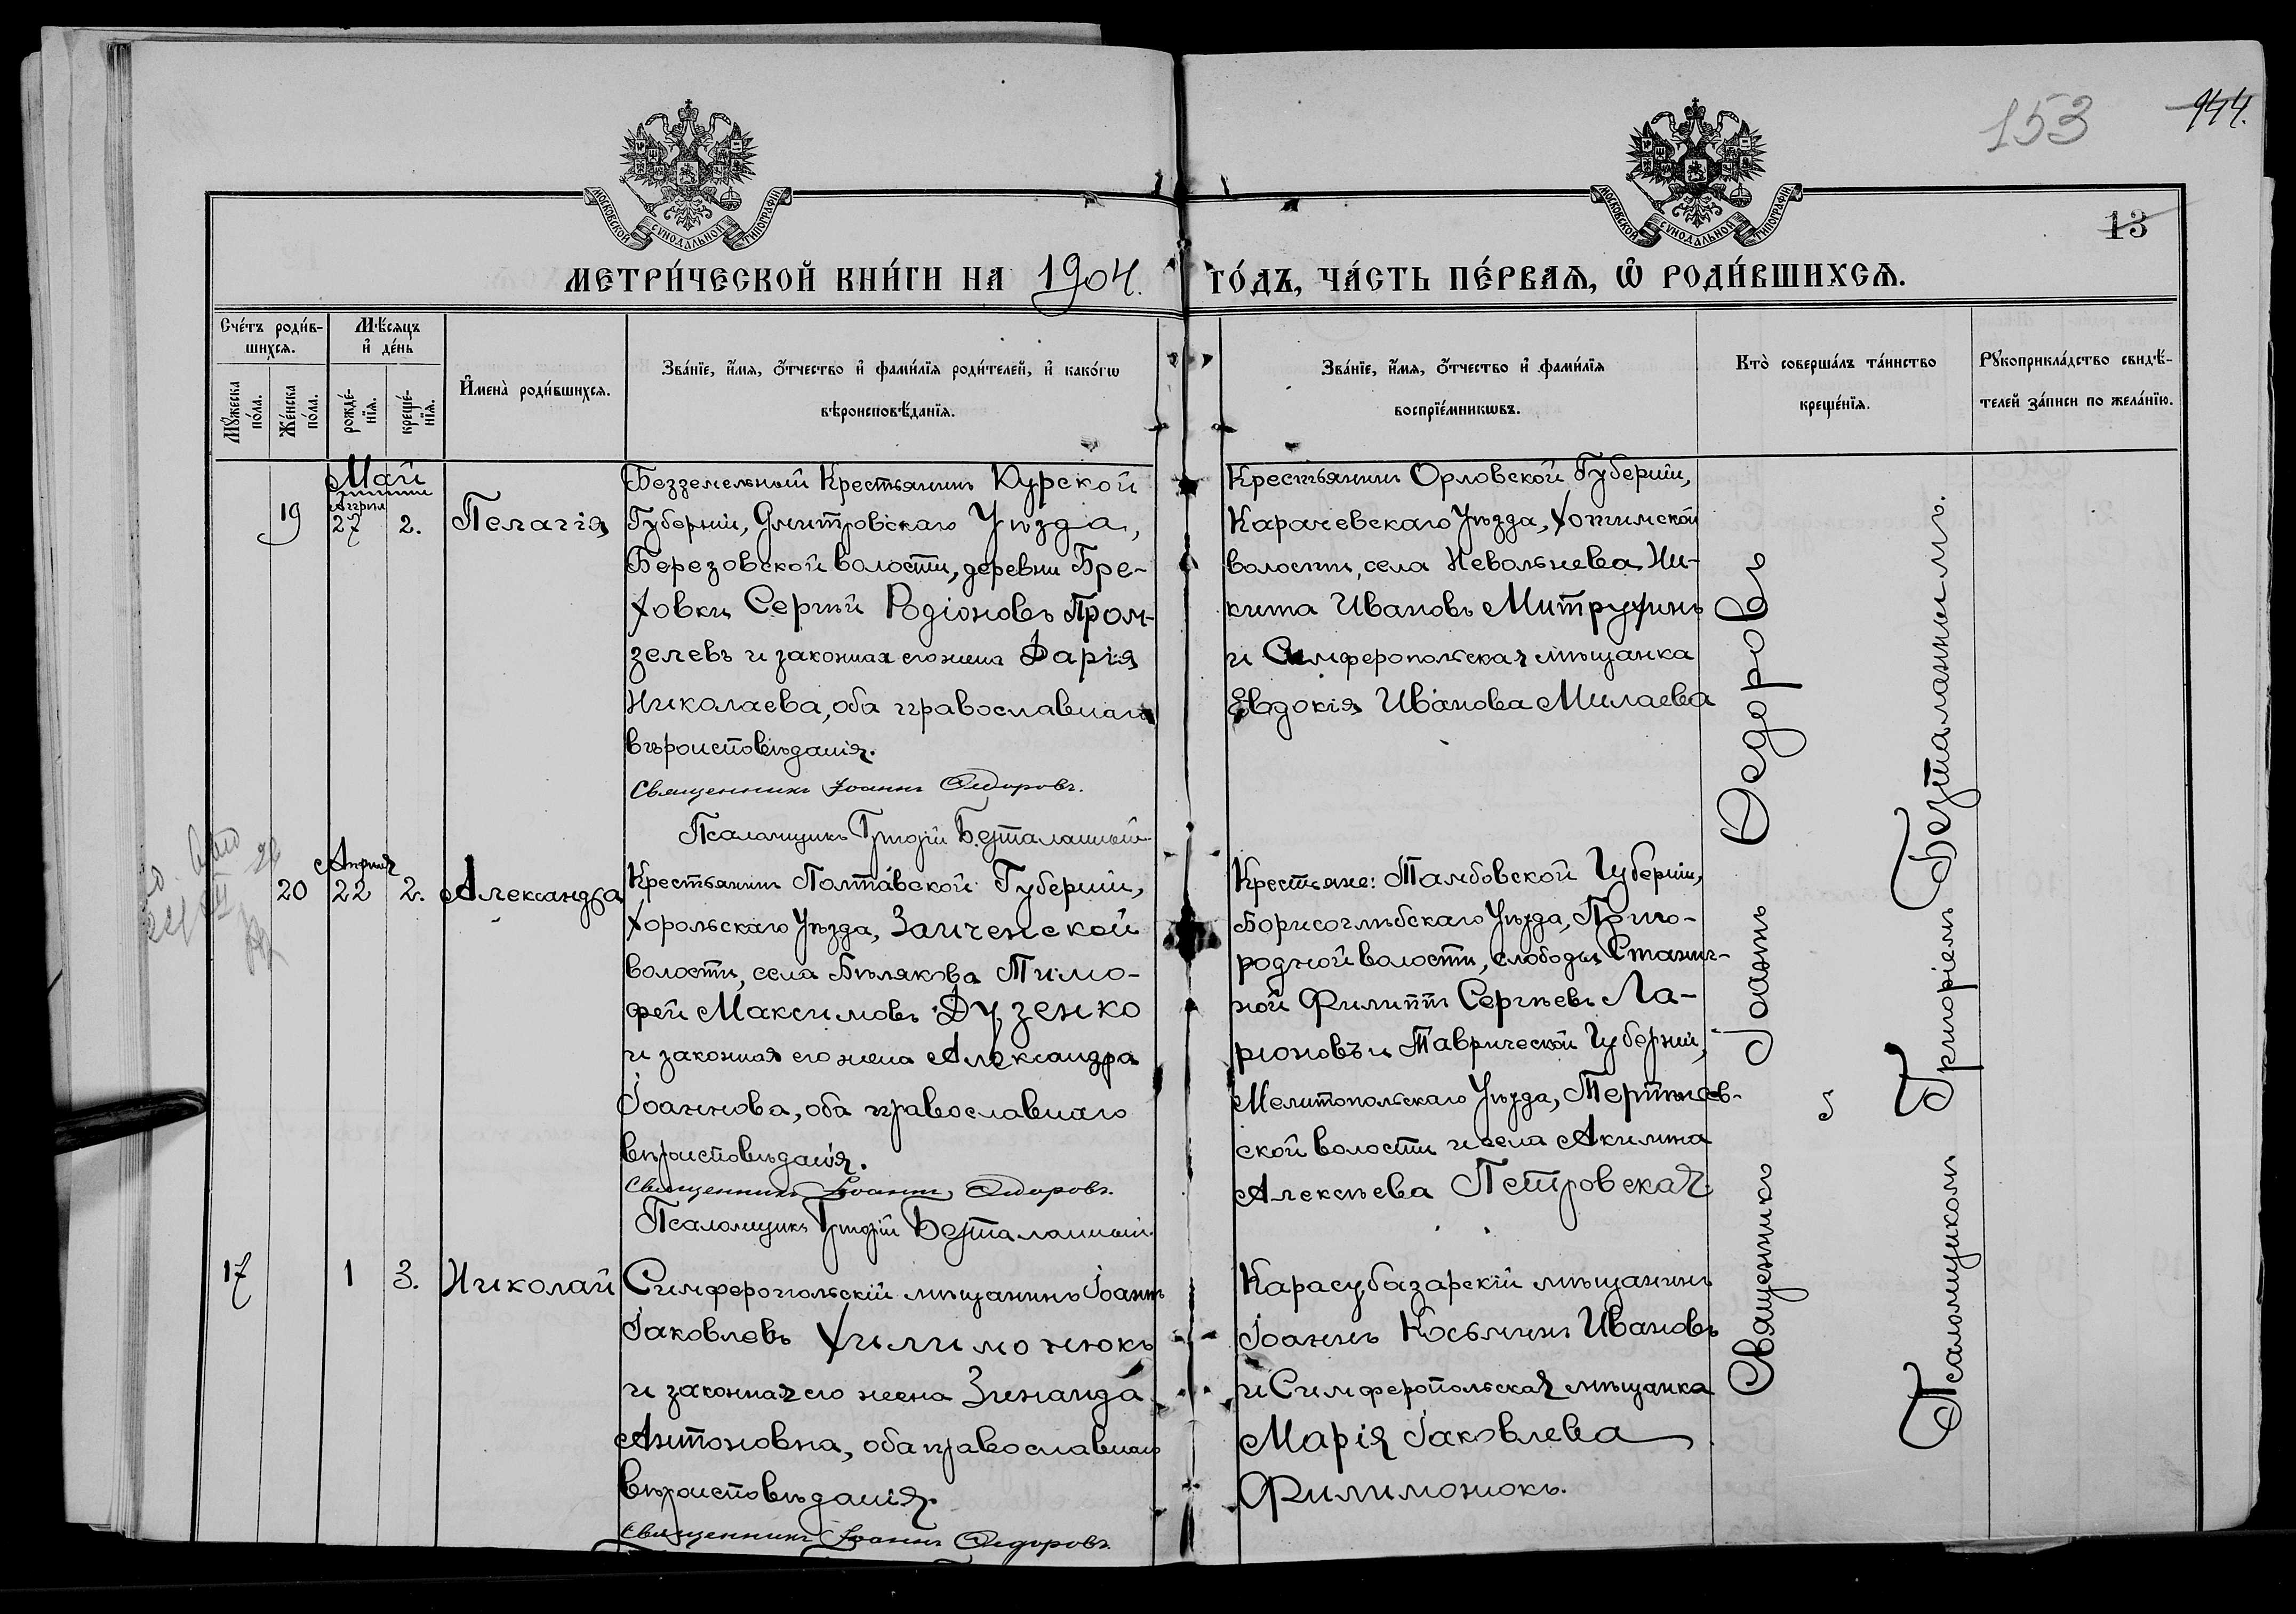 153
144.
МОСКОВСКОЙ СѴНОДАЛЬНОЙ ТИПОГРАФІИ
МОСКОВСКОЙ СѴНОДАЛЬНОЙ ТИПОГРАФІИ
13
МЕТРИ́ЧЕСКОЙ КНИ́ГИ НА 1904. ГО́ДЪ, ЧА́СТЬ ПЕ́РВАЯ, Ѡ РОДИ́ВШИХСЯ.
Сче́тъ роди́в-
шихся.
Мꙋ́жеска по́ла.
Же́нска по́ла.
Мѣ́сяцъ
и҆ де́нь
рожде́-
нїя.
креще́-
нїя.
И҆мена̀ роди́вшихся.
Зва́нїе, и҆́мя, о҆́тчество и҆ фами́лїя роди́телей, и҆ како́гѡ
вѣроисповѣ́данїя.
Зва́нїе, и҆́мя, о҆́тчество и҆ фами́лїя
воспрїе́мникѡвъ.
Кто̀ соверша́лъ та́инство
креще́нїя.
Рꙋкоприкла́дство свидѣ́-
телей за́писи по жела́нїю.
Май
Апрѣл
19
27
2.
Пелагія
Безземельный Крестьянинъ Курской
Губерніи, Дмитровскаго Уѣзда,
Березовской волости, деревни Бре-
ховки Сергѣй Родіоновъ Пром-
зелевъ и законная его жена Дарія
Николаева, оба православнаго
вѣроисповѣданія.
Священникъ Іоаннъ Ѳедоровъ.
Псаломщикъ Григорій Безталанный
Крестьянинъ Орловской Губерніи,
Карачевскаго Уѣзда, Хотимской
волости, села Невольнева Ни-
кита Ивановъ Митрухинъ
и Симферопольская мѣщанка
Евдокія Иванова Милаева
Апрѣля
20
22
2.
Александра
Крестьянинъ Полтавской Губерніи,
Хорольскаго Уѣзда, Заиченской
волости, села Бѣлякова Тимо-
фей Максимовъ Дузенко
и законная его жена Александра
Іоаннова, оба православнаго
вѣроисповѣданія.
Священникъ Іоаннъ Ѳедоровъ.
Псаломщикъ Григорій Безталанный.
Крестьяне: Тамбовской Губерніи,
Борисоглѣбскаго Уѣзда, Приго-
родной волости, слободы Станич-
ной Филиппъ Сергѣевъ Ла-
ріоновъ и Таврической Губерніи,
Мелитопольскаго Уѣзда, Терпѣнев-
ской волости и села Акилина
Алексѣева Петровская
17
1
3.
Николай
Симферопольскій мѣщанинъ Іоаннъ
Іаковлевъ Хилимонюкъ
и законная его жена Зинаида
Антоновна, оба православнаго
вѣроисповѣданія.
Священникъ Іоаннъ Ѳедоровъ.
Карасубазарскій мѣщанинъ
Іоаннъ Косьминъ Ивановъ
и Симферопольская мѣщанка
Марія Іаковлева
Филимонюкъ.
Священникъ Іоаннъ Ѳедоровъ
съ
Псаломщикомъ Григоріемъ Безталаннымъ.